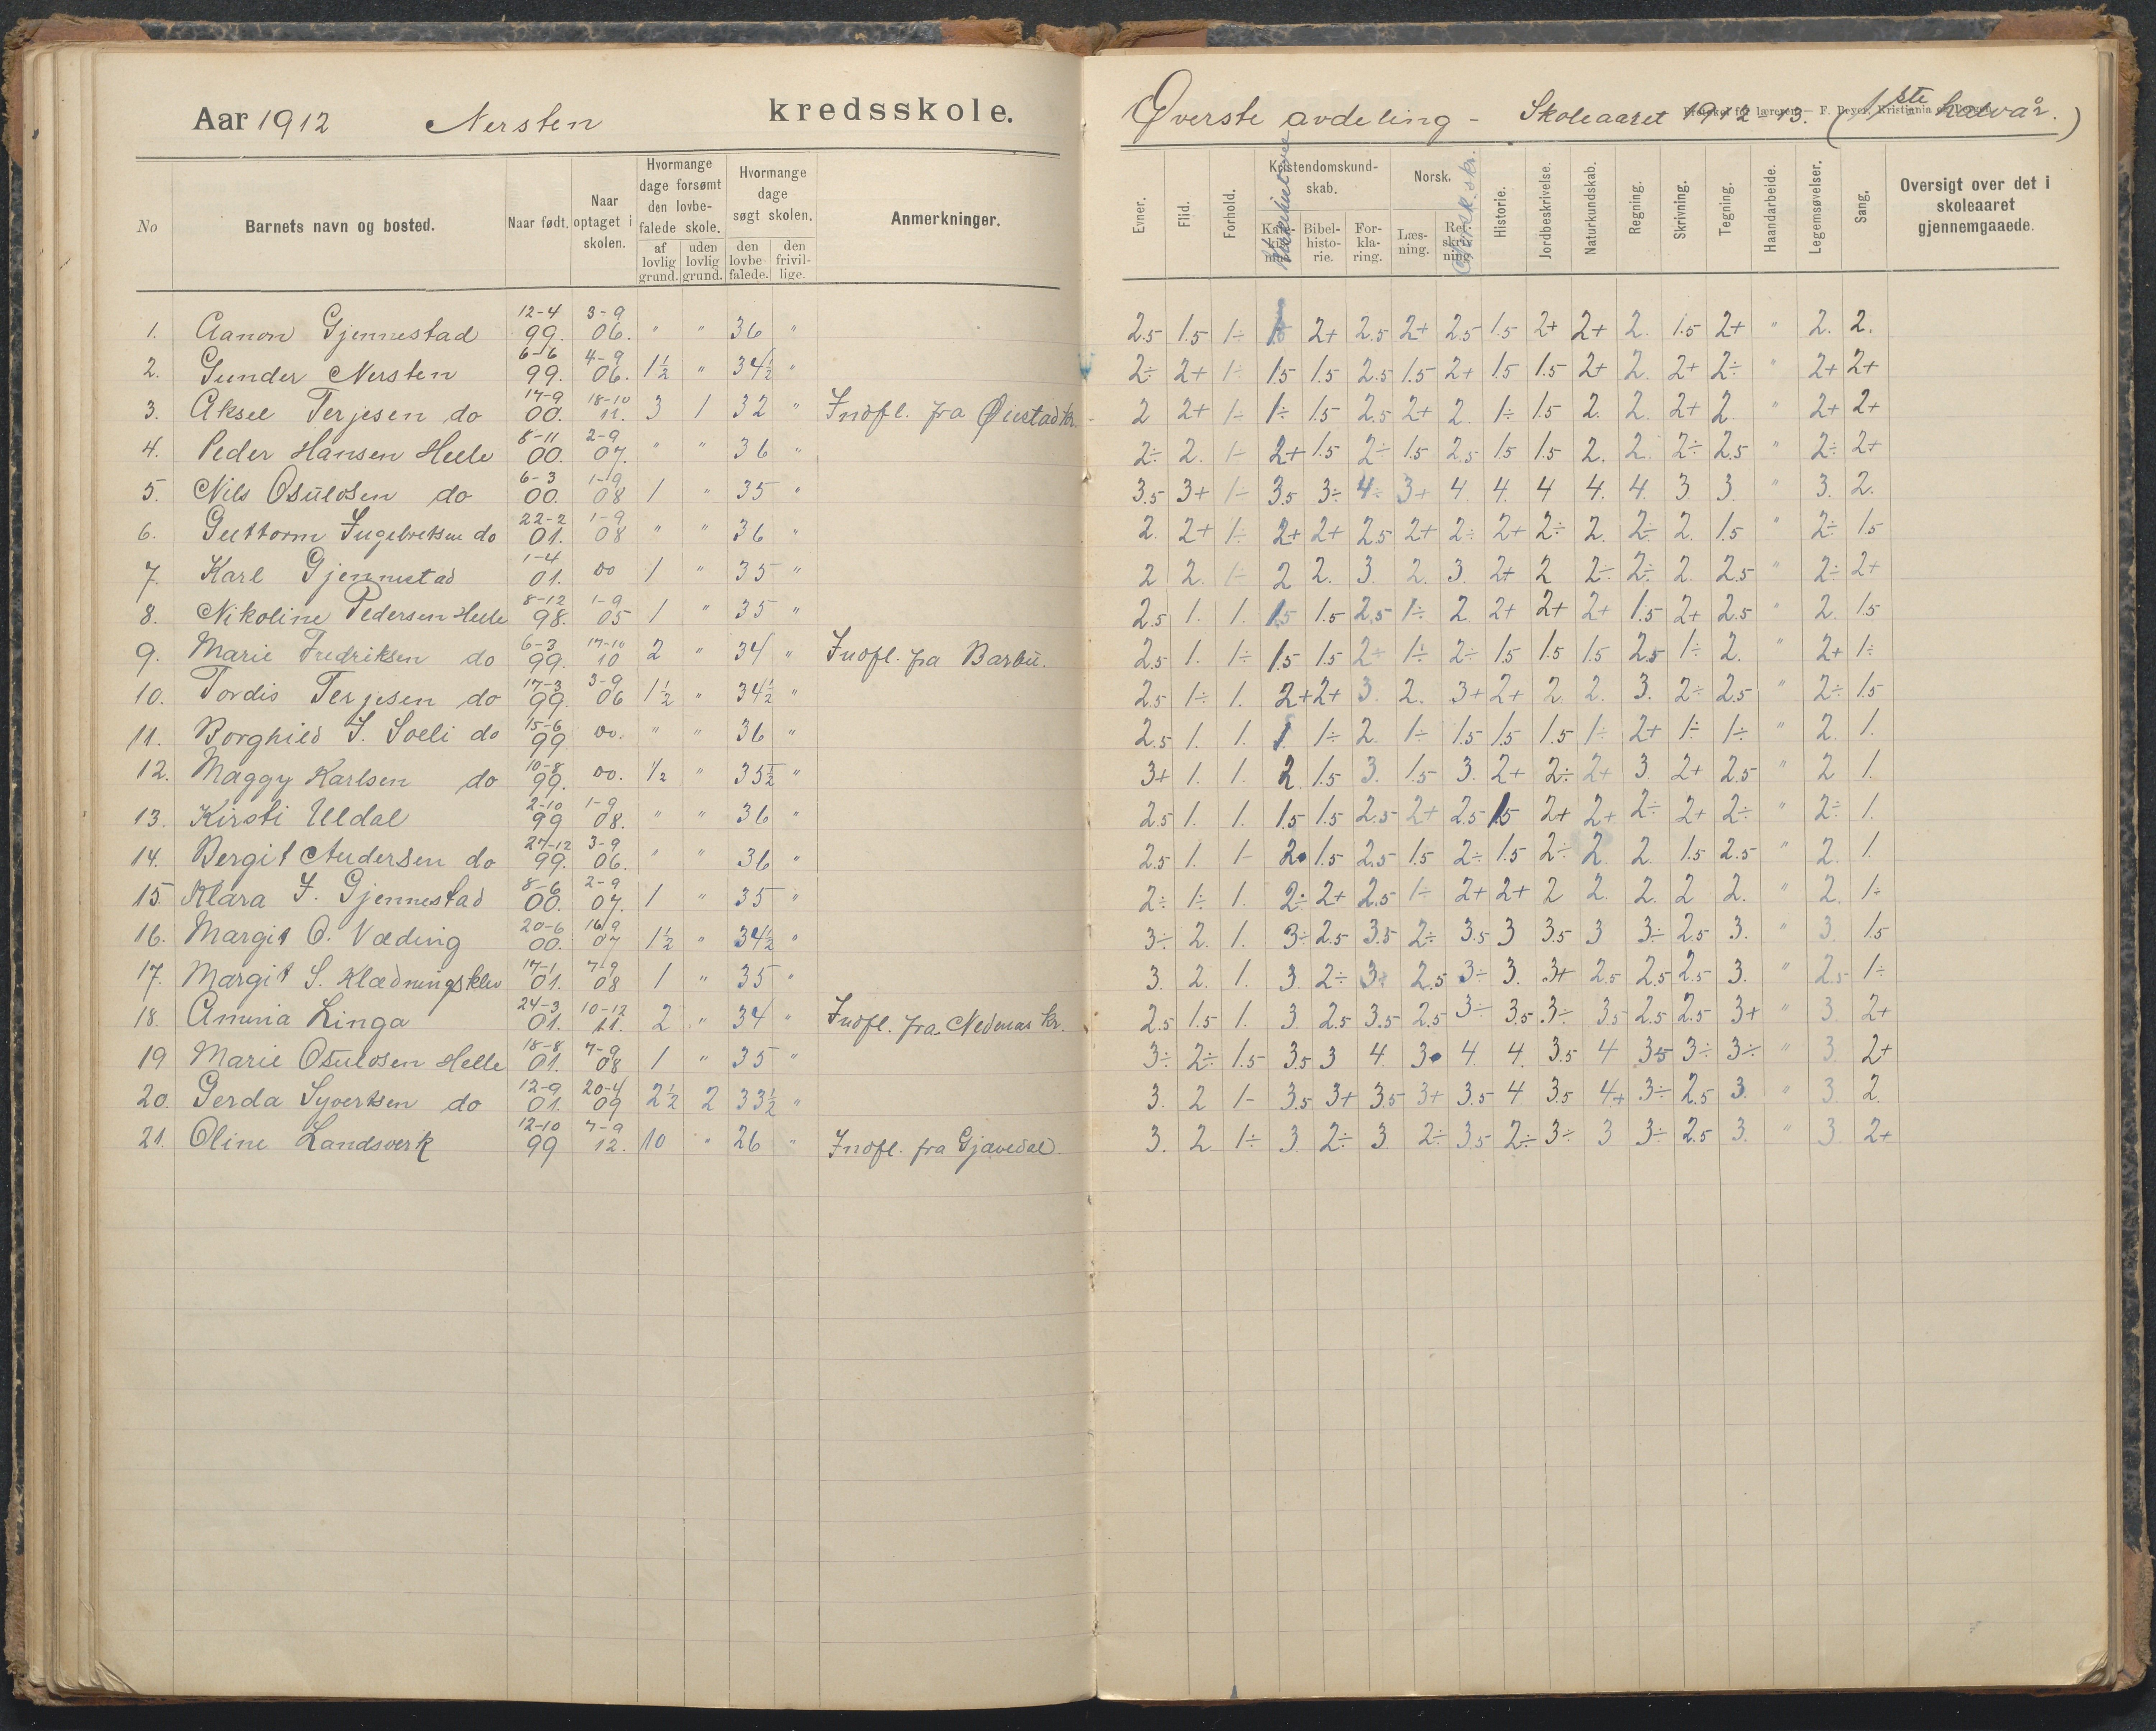 Aar 1912 Nersten kredsskole.
No
Barnets navn og bosted.
Naar født.
Naar optaget i skolen.
Hvormange dage forsømt den lovbefalede skole.
af lovlig grund.
uden lovlig grund.
Hvormange dage søgt skolen.
den lovbefalede.
den frivillige.
Anmerkninger.
1. Aanon Gjennestad 12-4 99. 3-9 06. " " 36 "
2. Gunder Nersten 6-6 99. 4-9 06. 1½ " 34½ "
3. Aksel Terjesen do 17-9 00. 18-10 11. 3 1 32 " Indfl. fra Øiestad kr.
4. Peder Hansen Helle 8-11 00. 2-9 07. " " 36 "
5. Nils Osuldsen do 6-3 00. 1-9 08 1 " 35 "
6. Guttorm Ingebretsen do 22-2 01. 1-9 08 " " 36 "
7. Karl Gjennestad 1-4 01. do 1 " 35 "
8. Nikoline Pedersen Helle 8-12 98. 1-9 05 1 " 35 "
9. Marie Fredriksen do 6-3 99. 17-10 10 2 " 34 " Indfl. fra Barbu.
10. Tordis Terjesen do 17-3 99. 3-9 06 1½ " 34½ "
11. Borghild J. Soeli do 15-6 99 do. " " 36 "
12. Maggy Karlsen do 10-8 99. do. ½ " 35½ "
13. Kirsti Uldal 2-10 99 1-9 08. " " 36 "
14. Bergit Andersen do 27-12 99. 3-9 06. " " 36 "
15. Klara J. Gjennestad 8-6 00. 2-9 07. 1 " 35 "
16. Margit O. Væding 20-6 00. 16/9 07 1½ " 34½ "
17. Margit S. Klædningsklev 17-1 01. 7-9 08 1 " 35 "
18. Amina Linga 24-3 01. 10-12 11. 2 " 34 " Indfl. fra Nedenæs kr.
19 Marie Osuldsen Helle 18-8 01. 7-9 08 1 " 35 "
20. Gerda Syvertsen do 12-9 01. 20-4 09 2½ 2 33½ "
21. Oline Landsverk 12-10 99 7-9 12. 10 " 26 " Indfl. fra Gjøvedal.
Øverste avdeling - Skoleaaret 1912-13. (1ste halvår.)
F. Beyer, Kristiania
Evner.
Flid.
Forhold.
Kristendomskundskab.
Bibelhistorie.
Forklaring.
Norsk.
Læsning.
Norsk skr.
Historie.
Jordbeskrivelse.
Naturkundskab.
Regning.
Skrivning.
Tegning.
Haandarbeide.
Legemsøvelser.
Sang.
Oversigt over det i skoleaaret gjennemgaaede.
2.5 1.5 1÷ 1.5 2+ 2.5 2+ 2.5 1.5 2+ 2+ 2. 1.5 2+ " 2. 2.
2÷ 2+ 1÷ 1.5 1.5 2.5 1.5 2+ 1.5 1.5 2+ 2. 2+ 2÷ " 2+ 2+
2 2+ 1÷ 1÷ 1.5 2.5 2+ 2. 1÷ 1.5 2. 2. 2+ 2. " 2+ 2+
2÷ 2. 1- 2+ 1.5 2÷ 1.5 2.5 1.5 1.5 2. 2. 2÷ 2.5 " 2÷ 2+
3.5 3+ 1- 3.5 3÷ 4÷ 3+ 4. 4. 4 4. 4. 3 3. " 3. 2.
2. 2+ 1÷ 2+ 2+ 2.5 2+ 2÷ 2+ 2÷ 2. 2÷ 2. 1.5 " 2÷ 1.5
2 2. 1- 2 2. 3. 2. 3. 2+ 2 2÷ 2÷ 2. 2.5 " 2÷ 2+
2.5 1. 1. 1.5 1.5 2.5 1÷ 2. 2+ 2+ 2+ 1.5 2+ 2.5 " 2. 1.5
2.5 1. 1÷ 1.5 1.5 2+ 1÷ 2÷ 1.5 1.5 1.5 2.5 1÷ 2. " 2+ 1÷
2.5 1÷ 1. 2+ 2+ 3. 2. 3+ 2+ 2. 2. 3. 2÷ 2.5 " 2÷ 1.5
2.5 1. 1. 1. 1÷ 2. 1÷ 1.5 1.5 1.5 1÷ 2+ 1÷ 1÷ " 2. 1.
3+ 1. 1. 2. 1.5 3. 1.5 3. 2+ 2÷ 2+ 3. 2+ 2.5 " 2 1.
2.5 1. 1. 1.5 1.5 2.5 2+ 2.5 1.5 2+ 2+ 2÷ 2+ 2÷ " 2÷ 1.
2.5 1. 1- 2. 1.5 2.5 1.5 2÷ 1.5 2÷ 2. 2. 1.5 2.5 " 2. 1.
2÷ 1÷ 1. 2÷ 2+ 2.5 1÷ 2+ 2+ 2 2. 2. 2 2. " 2. 1÷
3÷ 2. 1. 3÷ 2.5 3.5 2÷ 3.5 3 3.5 3 3÷ 2.5 3. " 3. 1.5
3. 2. 1. 3 2÷ 3+ 2.5 3÷ 3. 3+ 2.5 2.5 2.5 3. " 2.5 1÷
2.5 1.5 1. 3. 2.5 3.5 2.5 3÷ 3.5 3÷ 3.5 2.5 2.5 3+ " 3. 2+
3÷ 2÷ 1.5 3.5 3 4 3. 4. 4. 3.5 4 3.5 3÷ 3÷ " 3. 2+
3. 2 1- 3.5 3+ 3.5 3+ 3.5 4 3.5 4+ 3÷ 2.5 3. " 3. 2.
3. 2 1÷ 3 2÷ 3. 2÷ 3.5 2÷ 3÷ 3 3÷ 2.5 3. " 3. 2+